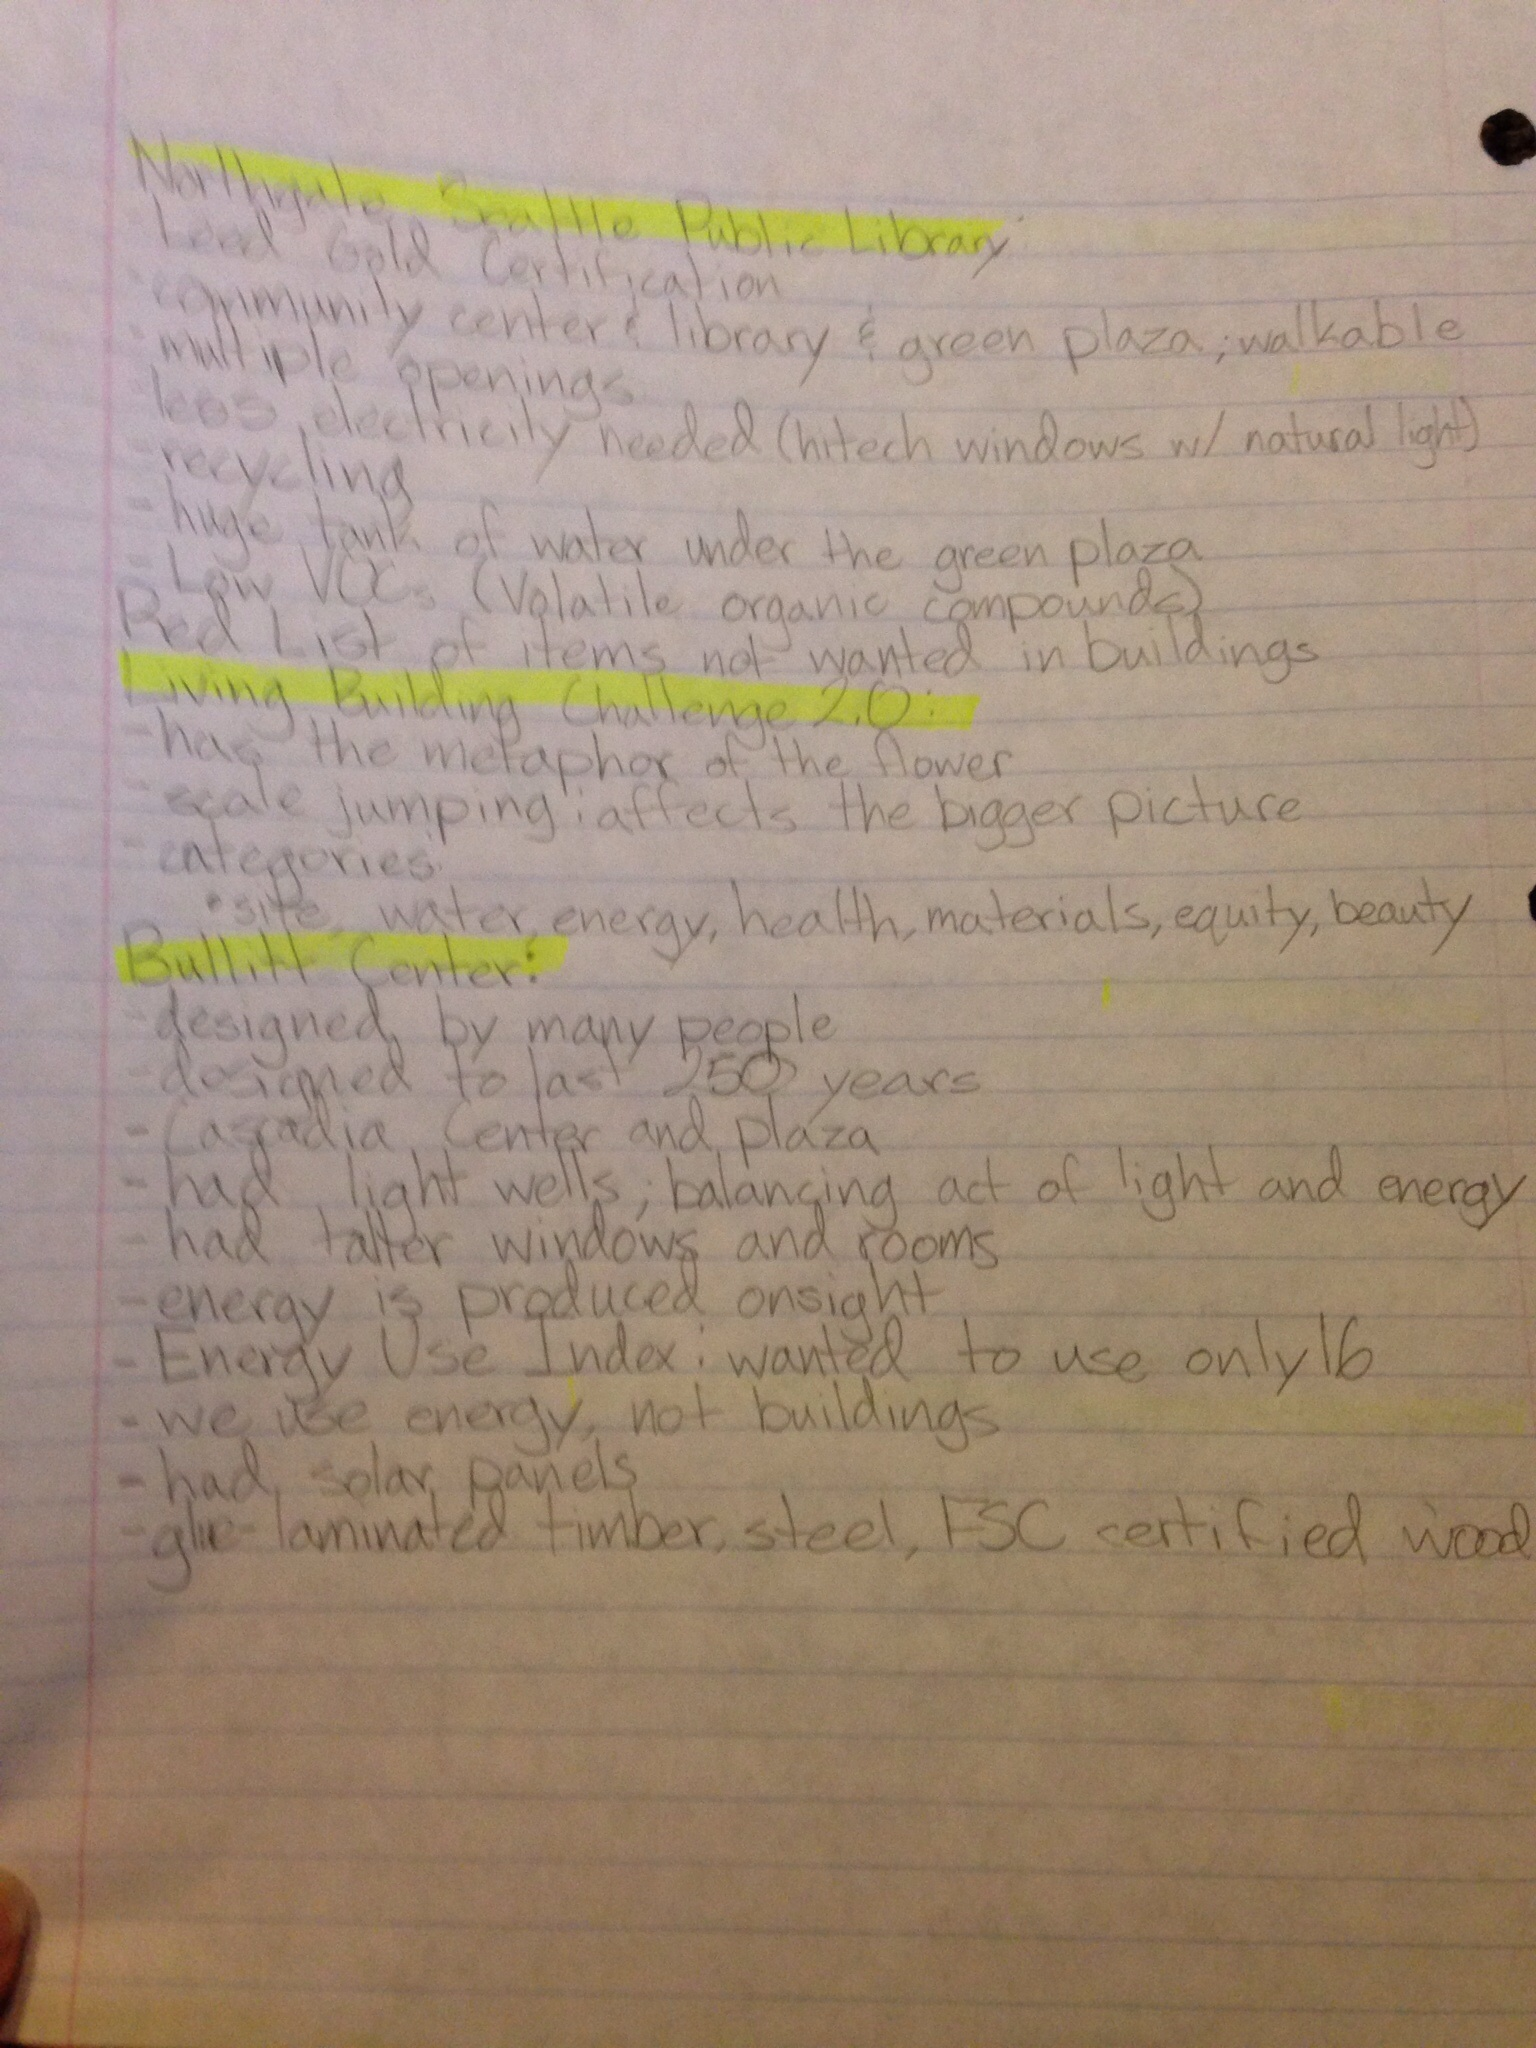 Northgate Seattle Public Library:
- Leed Gold Certification
- community center & library & green plaza; walkable
- multiple openings
- less electricity needed (hitech windows w/ natural light)
- recycling
- huge tank of water under the green plaza
- Low VOCs (Volatile organic compounds)
Red List of items not wanted in buildings
Living Building Challenge 2.0:
- has the metaphor of the flower
- scale jumping: affects the bigger picture
- categories:
• site, water, energy, health, materials, equity, beauty
Bullitt Center:
- designed by many people
- designed to last 250 years
- Cascadia Center and plaza
- had light wells; balancing act of light and energy
- had taller windows and rooms
- energy is produced onsight
- Energy Use Index: wanted to use only 16
- we use energy, not buildings
- had solar panels
- glue-laminated timber, steel, FSC certified wood